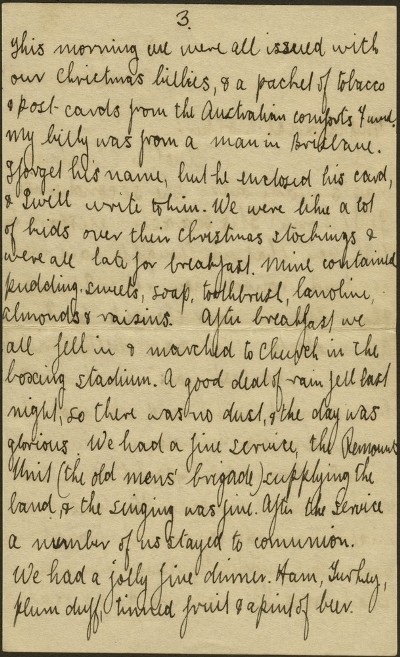 3.
This morning we were all issued with
our Christmas billies, & a packet of tobacco
& post-cards from the Australian comforts Fund.
My billy was from a man in Brisbane.
I forget his name, but he enclosed his card,
& I will write to him. We were like a lot
of kids over their Christmas stockings &
were all late for breakfast. Mine contained
pudding, sweets, soap, toothbrush, lanoline,
almonds & raisins. After breakfast we
all fell in & marched to Church in the
boxing stadium. A good deal of rain fell last
night, so there was no dust, & the day was
glorious. We had a fine service, the Remount
Unit (the old mens' brigade) supplying the
band, & the singing was fine. After the service
a number of us stayed to comunion.
We had a jolly fine dinner. Ham, Turkey,
plum duff, tinned fruit & a pint of beer.